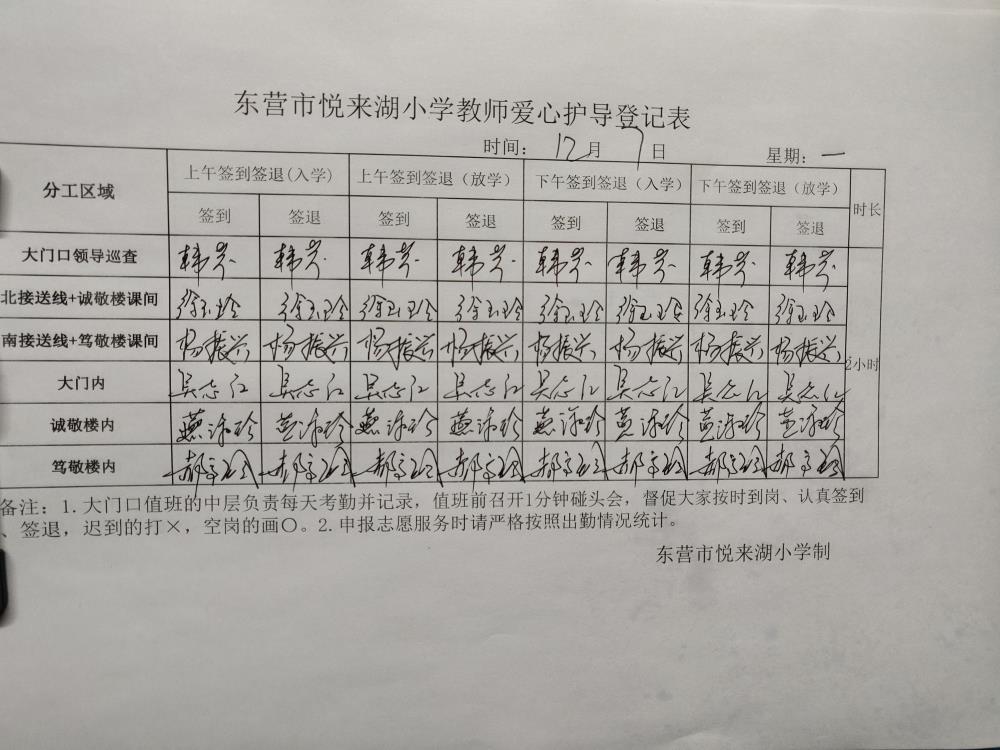 东营市悦来湖小学教师爱心护导登记表
时间： 12月 7日 星期：一
分工区域 上午签到签退(入学) 上午签到签退（放学） 下午签到签退（入学） 下午签到签退（放学） 时长
签到 签退 签到 签退 签到 签退 签到 签退
大门口领导巡查 韩芳 韩芳 韩芳 韩芳 韩芳 韩芳 韩芳 韩芳
北接送线+诚敬楼课间 徐玉玲 徐玉玲 徐玉玲 徐玉玲 徐玉玲 徐玉玲 徐玉玲 徐玉玲
南接送线+笃敬楼课间 杨振兴 杨振兴 杨振兴 杨振兴 杨振兴 杨振兴 杨振兴 杨振兴 2小时
大门内 吴志江 吴志江 吴志江 吴志江 吴志江 吴志江 吴志江 吴志江
诚敬楼内
笃敬楼内
备注：1.大门口值班的中层负责每天考勤并记录，值班前召开1分钟碰头会，督促大家按时到岗、认真签到
、签退，迟到的打×，空岗的画〇。2.申报志愿服务时请严格按照出勤情况统计。
东营市悦来湖小学制